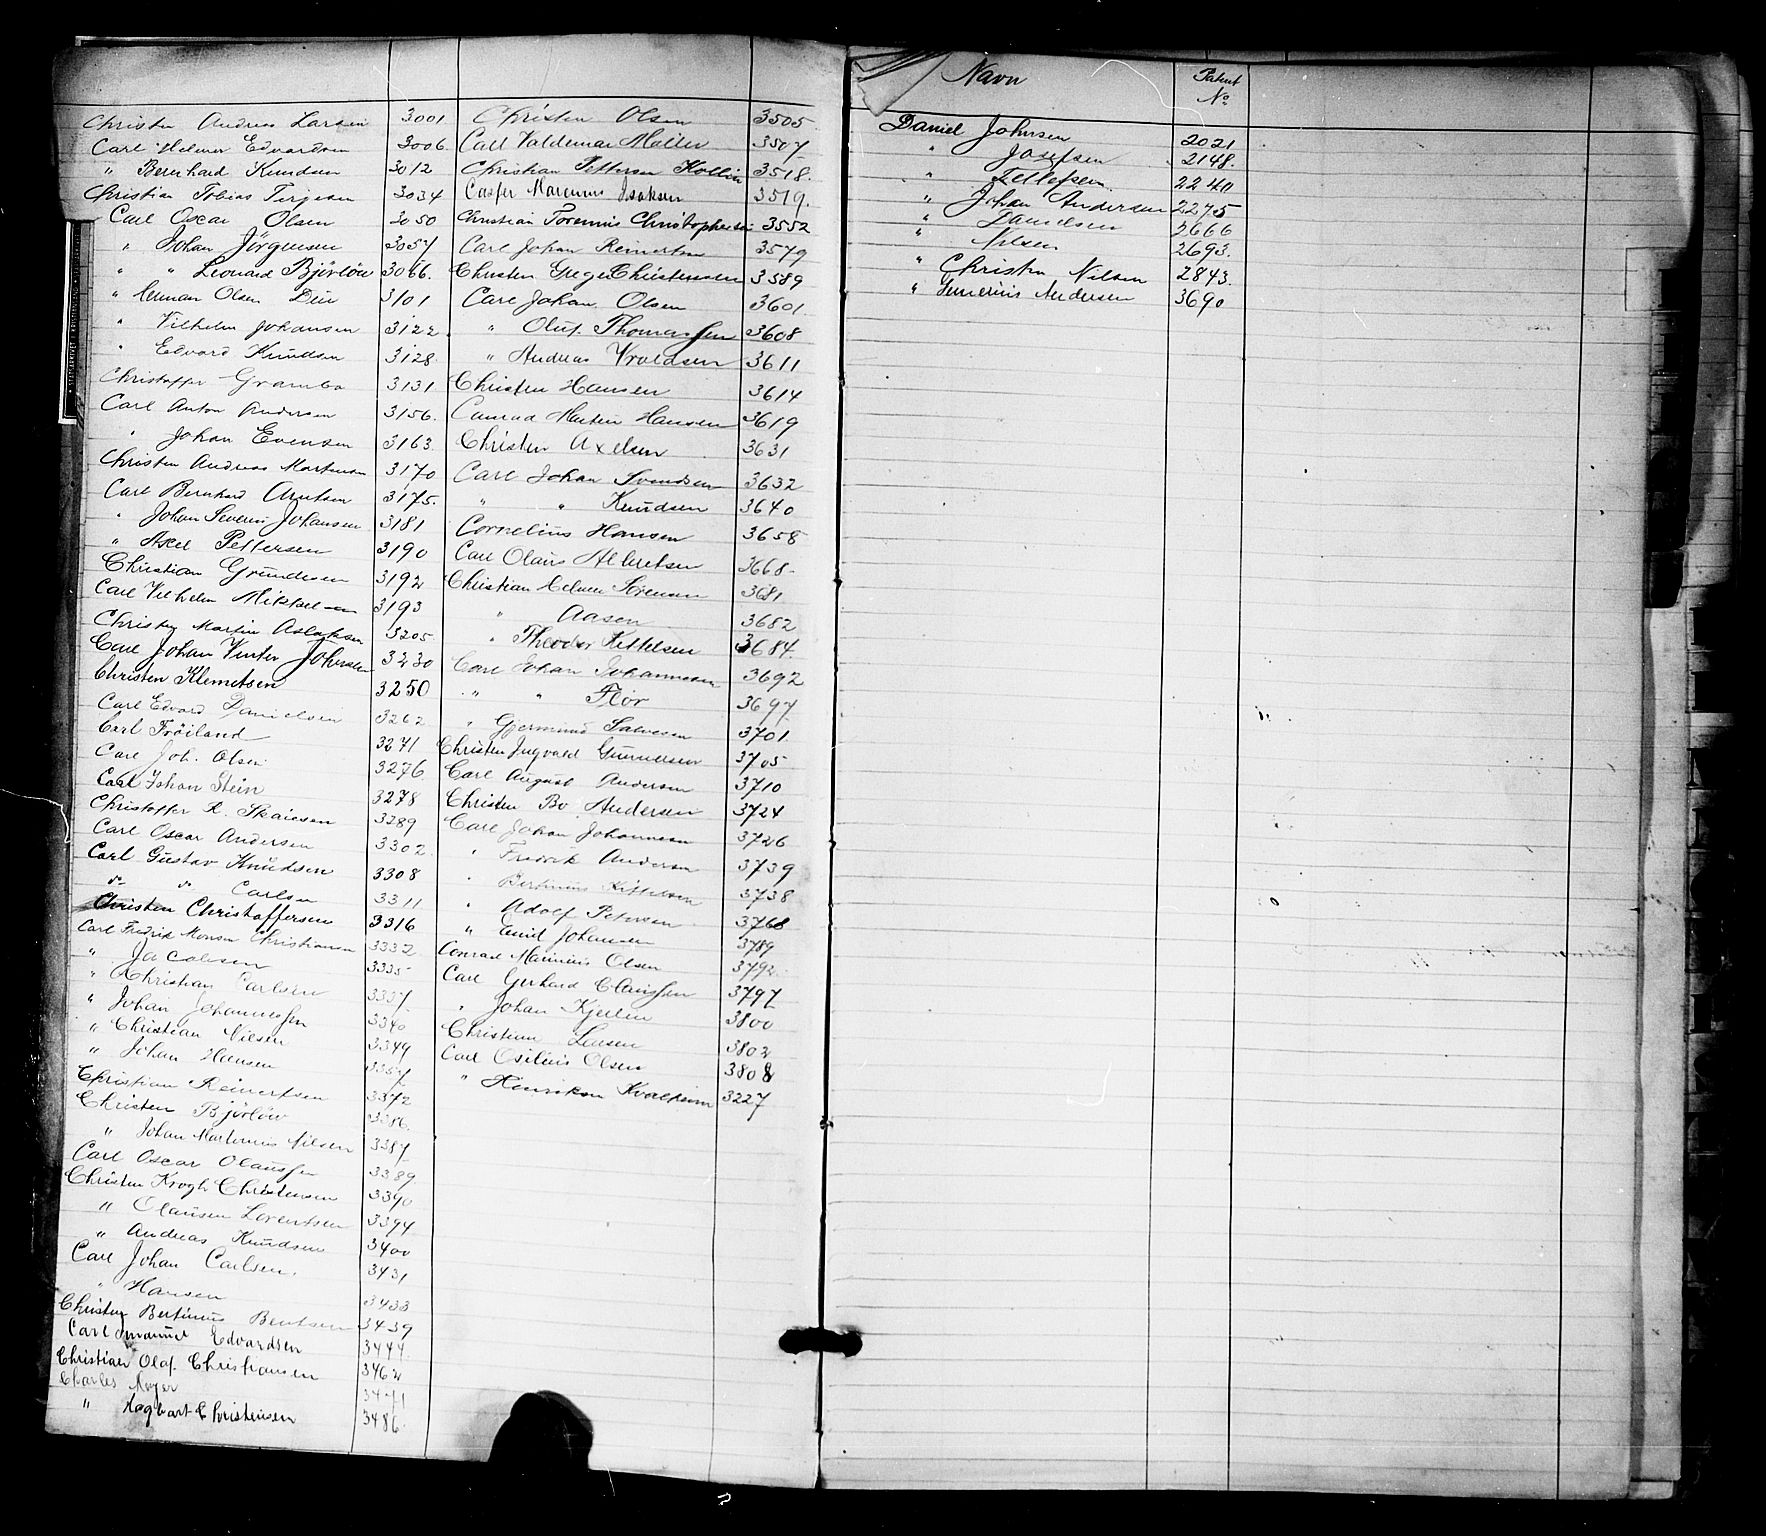 Christen Andreas Larsen 3001
Carl Helmer Edvardsen 3006
" Bernhard Knudsen 3012
Christian Tobias Terjesen 3034
Carl Oscar Olsen 3050
" Johan Jörgensen 3057
" " Leonard Björlöw 3066
" Herman Olsen Dein 3101
" Vilhelm Johansen 3122
" Edvard Knudsen 3128
Christoffer Grambo 3131
Carl Anton Andersen 3156
" Johan Evensen 3163
Christen Andreas Mortensen 3170
Carl Bernhard Arntsen 3175
" Johan Severin Johansen 3181
" Axel Pettersen 3190
Christian Grundesen 3192
Carl Vilhelm Mikkelsen 3193
Christen Martin Aslaksen 3205
Carl Johan Vinter Johnsen 3230
Christen Klemetsen 3250
Carl Edvard Danielsen 3262
Carl Fröiland 3271
Carl Joh. Olsen 3276
Carl Johan Stein 3278
Christoffer R. Skaiesen 3289
Carl Oscar Andersen 3302
Carl Gustav Knudsen 3308
do do Carlsen 3311
Christen Christoffersen 3316
Carl Fredrik Monsen Christiansen 3332
" Jacobsen 3335
" Christian Carlsen 3337
" Johan Johannessen 3340
" Christian Nilsen 3349
" Johan Hansen 3357
Christian Reinertsen 3372
Christen Björlöw 3386
" Johan Martinius Nilsen 3387
Carl Oscar Olaussen 3389
Christen Krogh Christensen 3390
" Olausen Lorentsen 3394
" Andreas Knudsen 3400
Carl Johan Carlsen. 3431
" Hansen 3433
Christen Bertinius Bentsen 3439
Carl Emanuel Edvardsen 3444
Christian Olaf Christiansen 3462
Charles Meyer 3471
" Hagbart Christensen 3486
Christen Olsen 3505
Carl Valdemar Møller 3507
Christian Petterson Kollin 3518
Casper Marenius Isaksen 3519
Christian Torennis Christophersen 3552
Carl Johan Reinertsen 3579
Christen Greger Christensen 3589
Carl Johan Olsen 3601
" Oluf Thomassen 3608
" Andreas Vroldsen 3611
Christen Hansen 3614
Conrad Martin Hansen 3619
Christen Axelsen 3631
Carl Johan Svendsen 3632
" " Knudsen 3640
Cornelius Hansen 3658
Carl Olaus Albretsen 3668
Christian Helmer Sørensen 3681
" Aasen 3682
" Theodor Kittelsen 3684
Carl Johan Johannesen 3692
" " Flör 3697
" Gjermund Salvesen 3701
Christen Ingvald Gunnersen 3705
Carl August Andersen 3710
Christen Bo Andersen 3724
Carl Johan Johannesen 3726
" Fredrik Andersen 3739
" Bertinius Kittelsen 3738
" Adolf Petersen 3768
" Emil Johansen 3789
Conrad Marinius Olsen 3792
Carl Gerhard Claussen 3797
" Johan Kjerlin 3800
Christian Larsen 3802
Carl Osilius Olsen 3808
" Henriksen Kvalheim 3227
Navn Patent No
Daniel Johnsen 2021
" Josefsen 2148
" Tellefsen 2240
" Johan Andersen 2275
" Danielsen 2666
" Nilsen 2693
" Christen Nilsen 2843
" Gunerius Andersen 3690